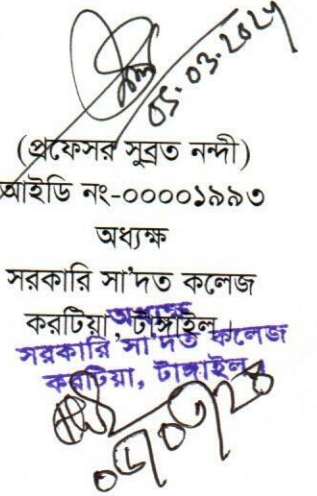 05.03.2024
(প্রফেসর সুব্রত নন্দী)
আইডি নং-০০০০১৯৯৩
অধ্যক্ষ
সরকারি সা'দত কলেজ
করটিয়া, টাঙ্গাইল।
অধ্যক্ষ
সরকারি সা'দত কলেজ
করটিয়া, টাঙ্গাইল।